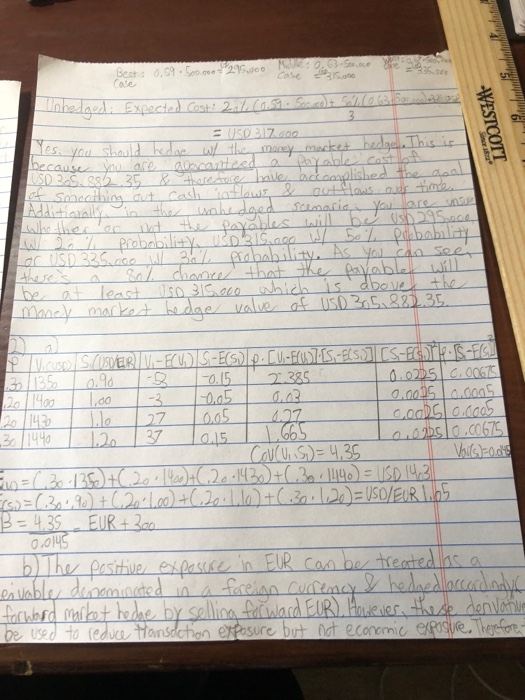 Best: 0.59 · 500,000 = 295,000
Case
Middle: 0.63 · 500,000
Case = 315,000
= 335,000
Unhedged: Expected Cost: 20% (0.59 · 500,000) + 50% (0.63
3
= USD 317,000
Yes, you should hedge w/ the money market hedge. This is
because you are guaranteed a payable cost of
USD 305,882.35 & therefore have accomplished the goal
of smoothing out cash inflows & outflows over time.
Additionally, in the unhedged scenario, you are unsure
whether or not the payables will be USD 295,000
w/ 20% probability, USD 315,000 w/ 50% probability
or USD 335,000 w/ 30% probability. As you can see,
there's a 80% chance that the payables will
be at least USD 315,000 which is above the
money market hedge value of USD 305,882.35.
2) a)
P | Vi(USD) | Si(USD/EUR) | Vi-E(Vi) | Si-E(Si) | P·[Vi-E(Vi)]·[Si-E(Si)] | [Si-E(Si)]² | P·[Si-E(Si)]²
.30 | 1350 | 0.90 | -53 | -0.15 | 2.385 | 0.0225 | 0.00675
.20 | 1400 | 1.00 | -3 | -0.05 | 0.03 | 0.0025 | 0.0005
.20 | 1430 | 1.10 | 27 | 0.05 | 0.27 | 0.0025 | 0.0005
.30 | 1440 | 1.20 | 37 | 0.15 | 1.665 | 0.0225 | 0.00675
Cov(Vi,Si) = 4.35 Var(S)=0.0145
= (.30 · 1350) + (.20 · 1400) + (.20 · 1430) + (.30 · 1440) = USD 1403
(S) = (.30 · .90) + (.20 · 1.00) + (.20 · 1.10) + (.30 · 1.20) = USD/EUR 1.05
β = 4.35 = EUR + 300
0.0145
b) The positive exposure in EUR can be treated as a
denominated in a foreign currency & hedged accordingly
forward market hedge by selling forward EUR). However, these
be used to reduce transaction exposure but not economic exposure. Therefore
WESTCOTT